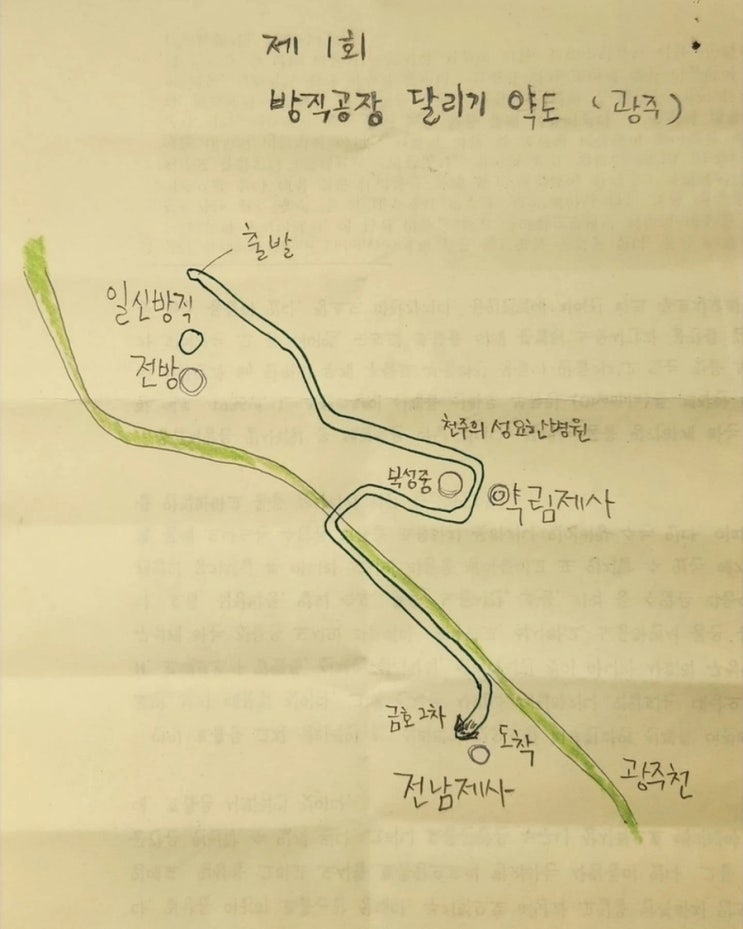 제 1회
방직공장 달리기 약도 (광주)
출발
일신방직
전방
천주의 성요한병원
북성중
약림제사
금호 2차
도착
전남제사
광주천